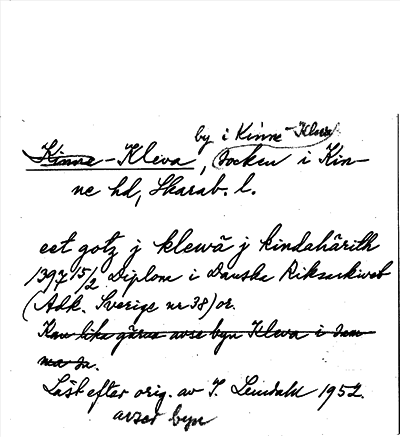 by i Kinne-Kleva
Kinne-Kleva, socken i Kin-
ne hd, Skarab. l.
eet gotz j klewā j kindahārith
1397 15/2 Diplom i Danska Riksarkivet
(Adk. Sverige nr 38) or.
Kan lika gärna avse byn Kleva i sam-
ma sn.
Läst efter orig. av I. Lundahl 1952.
avser byn